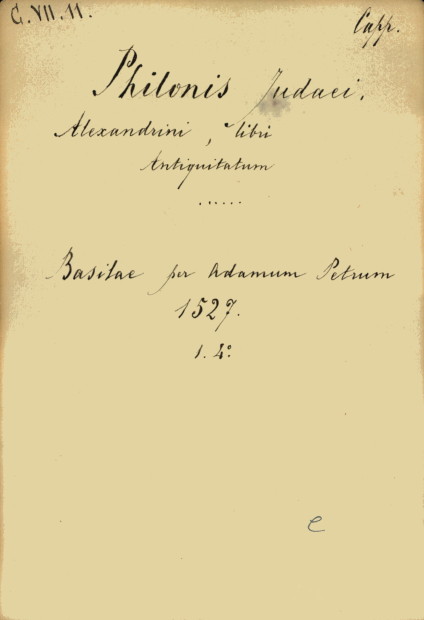 G. VII. 11.
Capp.
Philonis Judaei.
Alexandrini, libri
Antiquitatum
......
Basilae per Adamum Petrum
1527.
1. 4°.
e